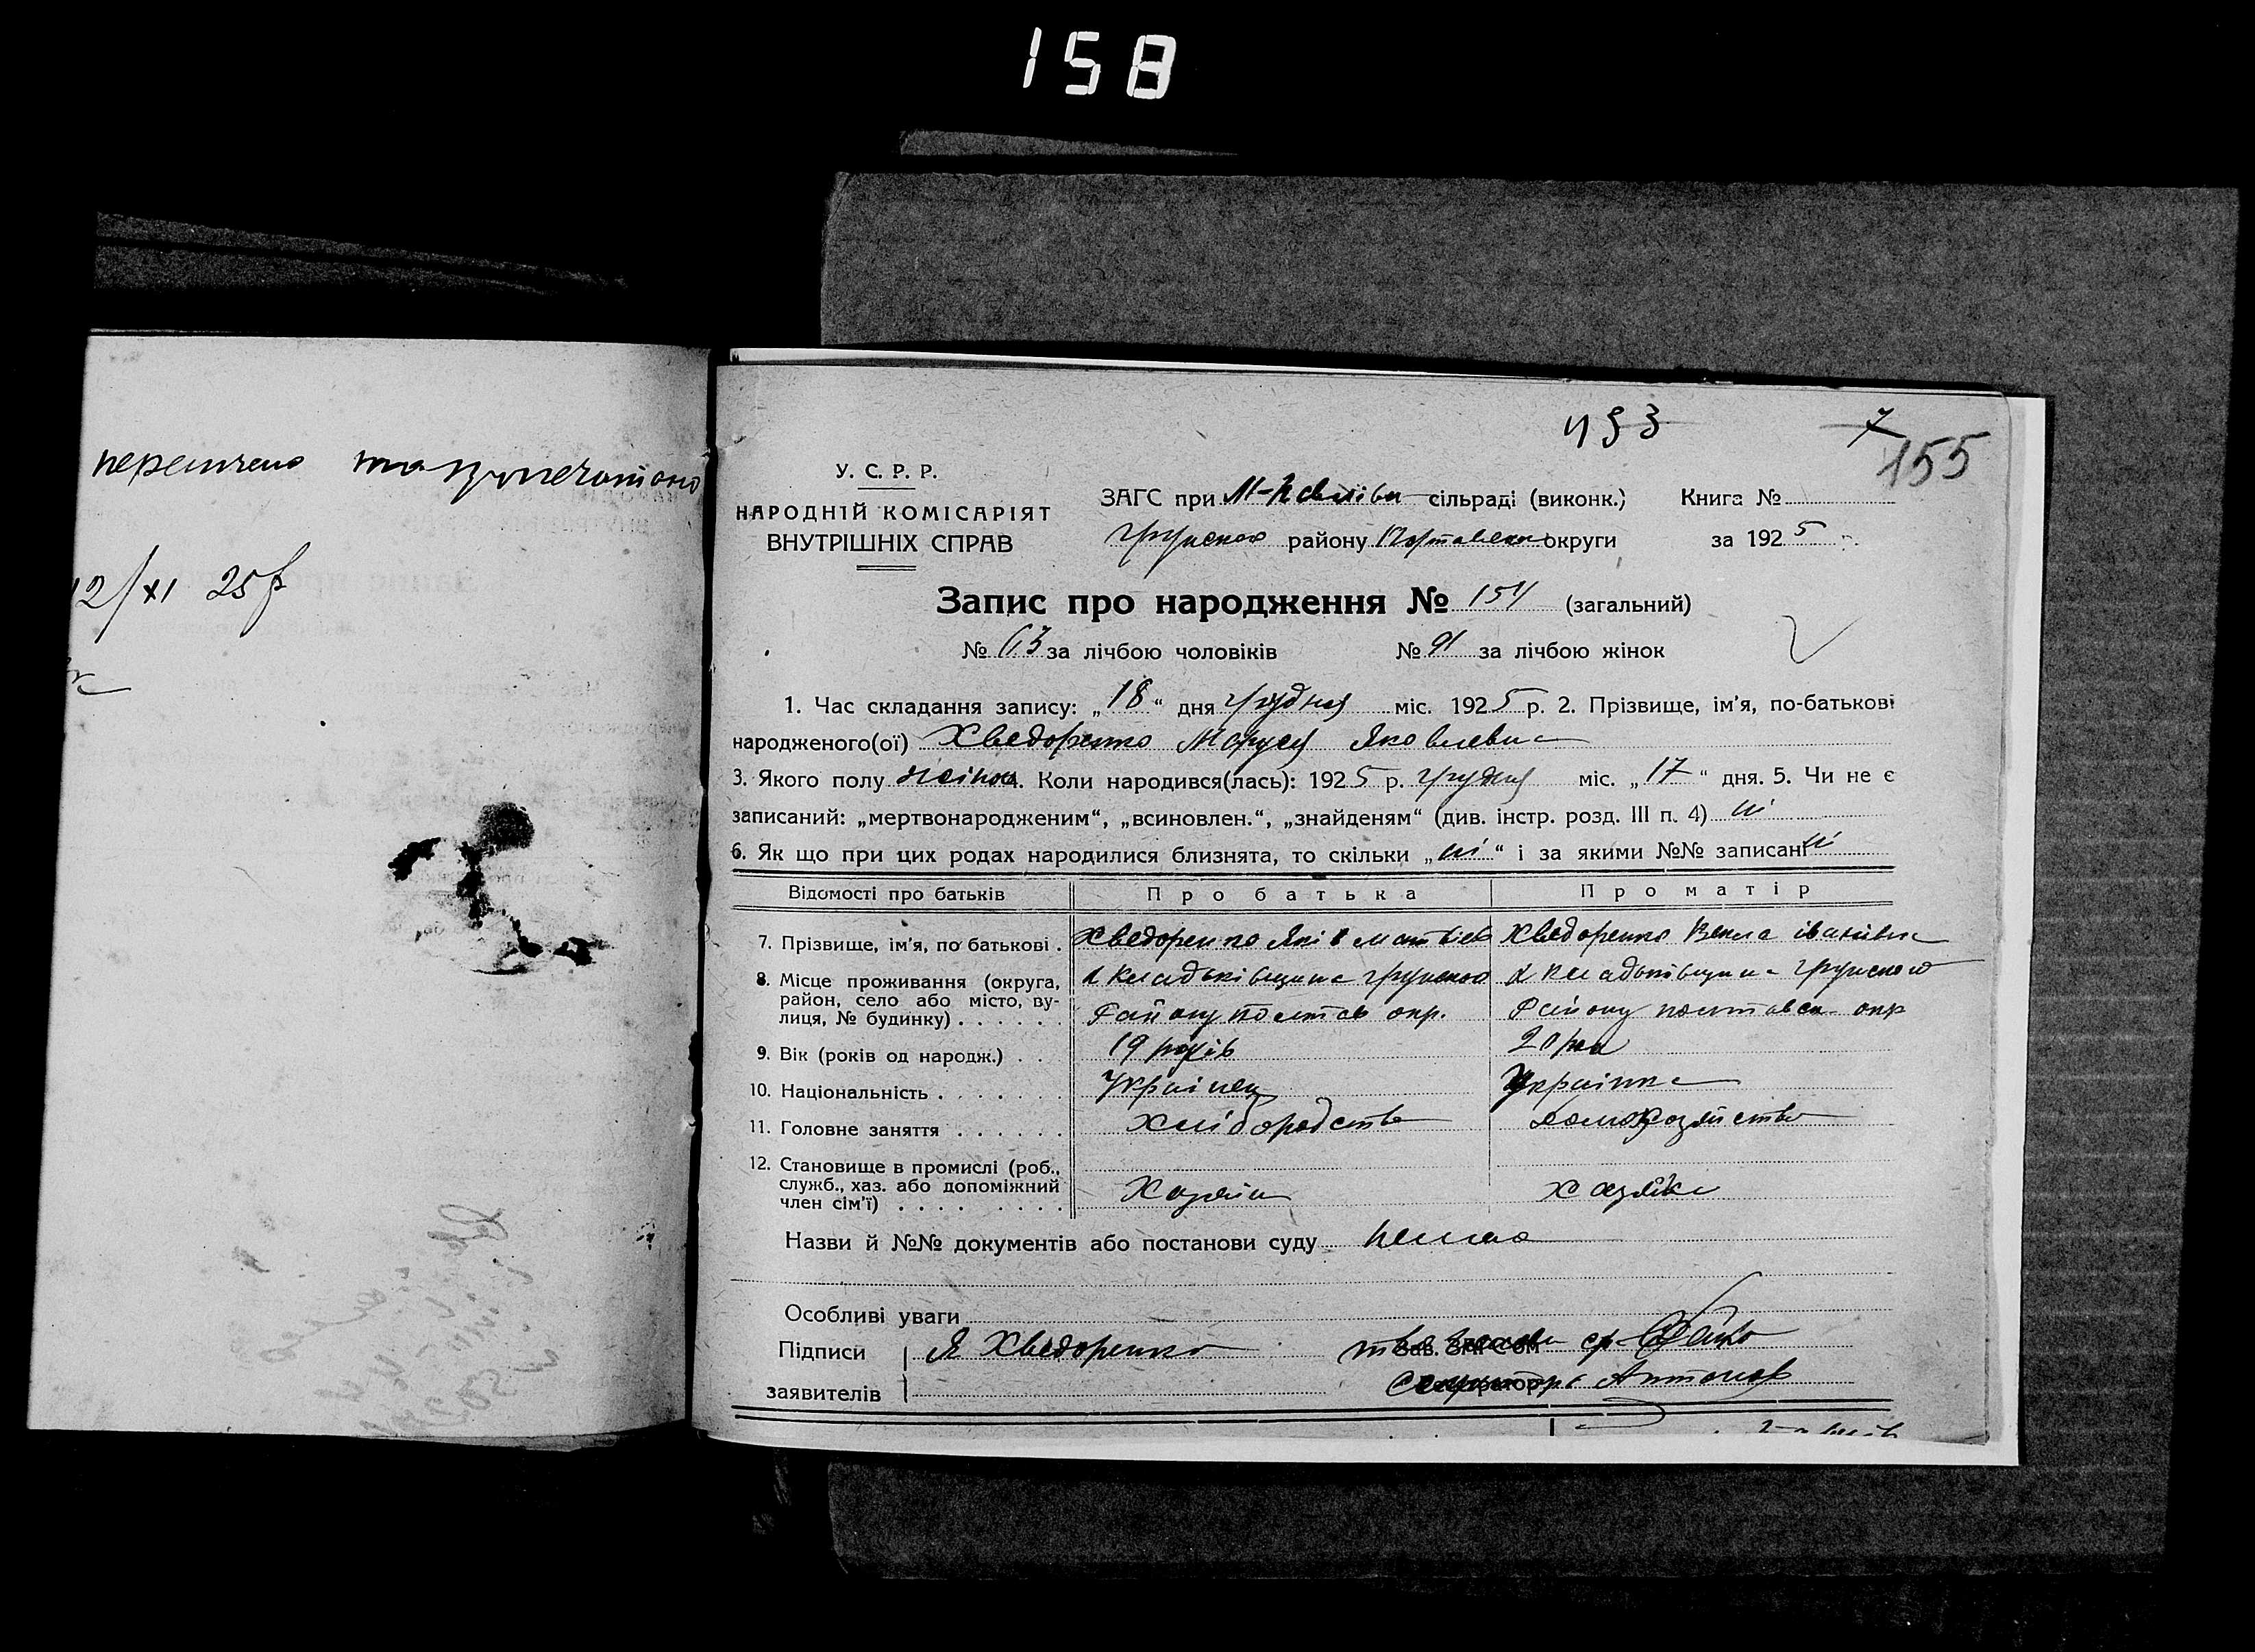 158
перелічено та
12/XI 25р
193
7
155
У. С. Р. Р.
НАРОДНІЙ КОМІСАРІЯТ
ВНУТРІШНІХ СПРАВ
ЗАГС при сільраді (виконк.) Книга №
району округи за 1925 р.
Запис про народження № 154 (загальний)
№ 63 за лічбою чоловіків № 91 за лічбою жінок
1. Час складання запису: „18“ дня грудня міс. 1925 р. 2. Прізвище, ім'я, по-батькові
народженого(ої) Хведоренко Маруся Яковлевна
3. Якого полу жінка 4. Коли народився(лась): 1925 р. грудня міс. „17“ дня. 5. Чи не є
записаний: „мертвонародженим“, „всиновлен.“, „знайденям“ (див. інстр. розд. III п. 4) ні
6. Як що при цих родах народилися близнята, то скільки „ні“ і за якими №№ записані ні
Відомості про батьків Про батька Про матір
7. Прізвище, ім'я, по батькові . Хведоренко Яків Матвіев Хведоренко Векла Іванівна
8. Місце проживання (округа, район, село або місто, вулиця, № будинку) . . . . . . х Кладьківщина грунского х Кладьківщина грунского
району полтав окр. Району полтавск. окр
9. Вік (років од народж.) . . 19 років 20 рок
10. Національність . . . . . . . Українец Українка
11. Головне заняття . . . . . . Хліборобство домохозяйство
12. Становище в промислі (роб., служб., хаз. або допоміжний член сім'ї) . . . . . . . . Хазяїн хазяйка
Назви й №№ документів або постанови суду немає
Особливі уваги
Підписи Я Хведоренко Зав. ЗАГСом
заявителів Секретар Антонов